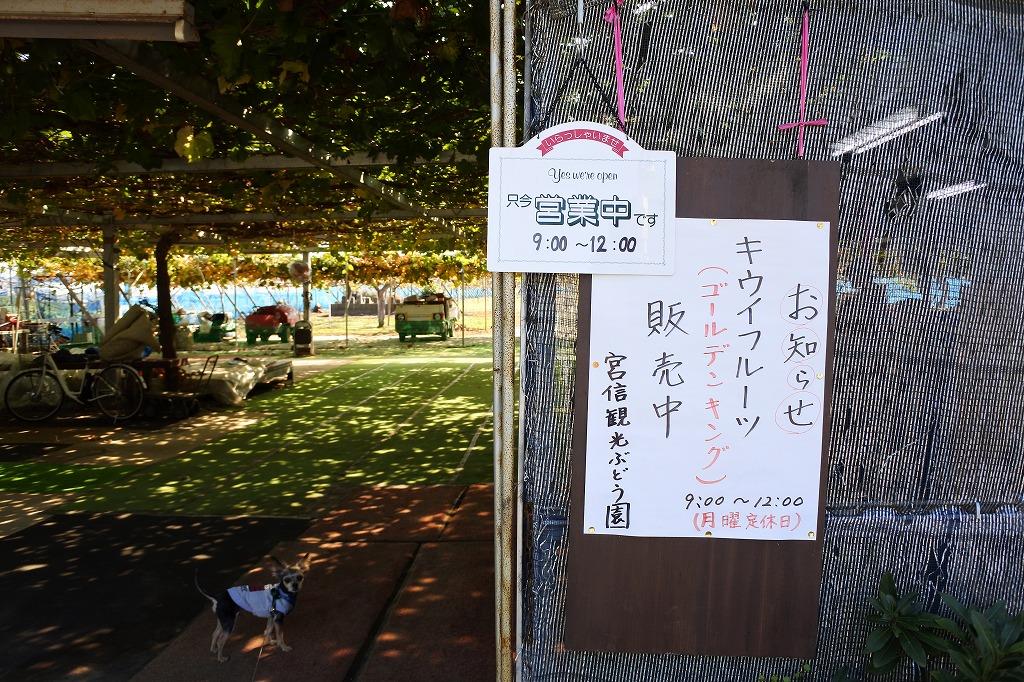 いらっしゃいませ
Yes we're open
只今営業中です
9:00 ～12:00
お知らせ
キウイフルーツ
(ゴールデンキング)
販売中
宮信観光ぶどう園
9:00 ～12:00
(月曜定休日)